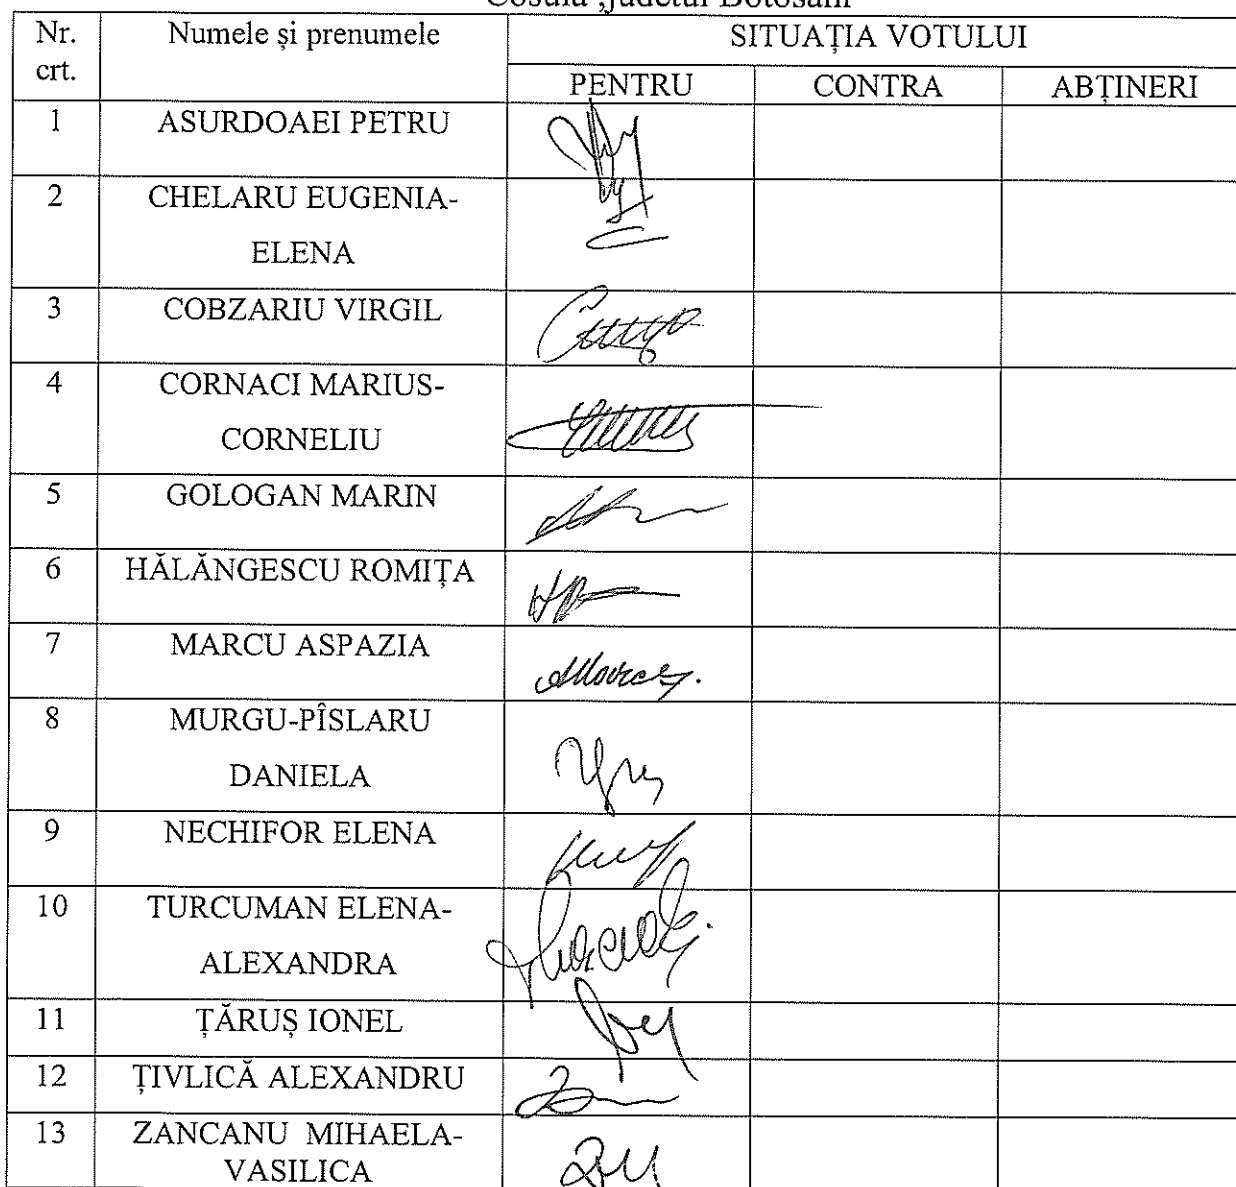 Coșula ,Județul Botoșani
Nr. crt. Numele și prenumele SITUAȚIA VOTULUI
PENTRU CONTRA ABȚINERI
1 ASURDOAEI PETRU
2 CHELARU EUGENIA-
ELENA
3 COBZARIU VIRGIL
4 CORNACI MARIUS-
CORNELIU
5 GOLOGAN MARIN
6 HĂLĂNGESCU ROMIȚA
7 MARCU ASPAZIA
8 MURGU-PÎSLARU
DANIELA
9 NECHIFOR ELENA
10 TURCUMAN ELENA-
ALEXANDRA
11 ȚĂRUȘ IONEL
12 ȚIVLICĂ ALEXANDRU
13 ZANCANU MIHAELA-
VASILICA